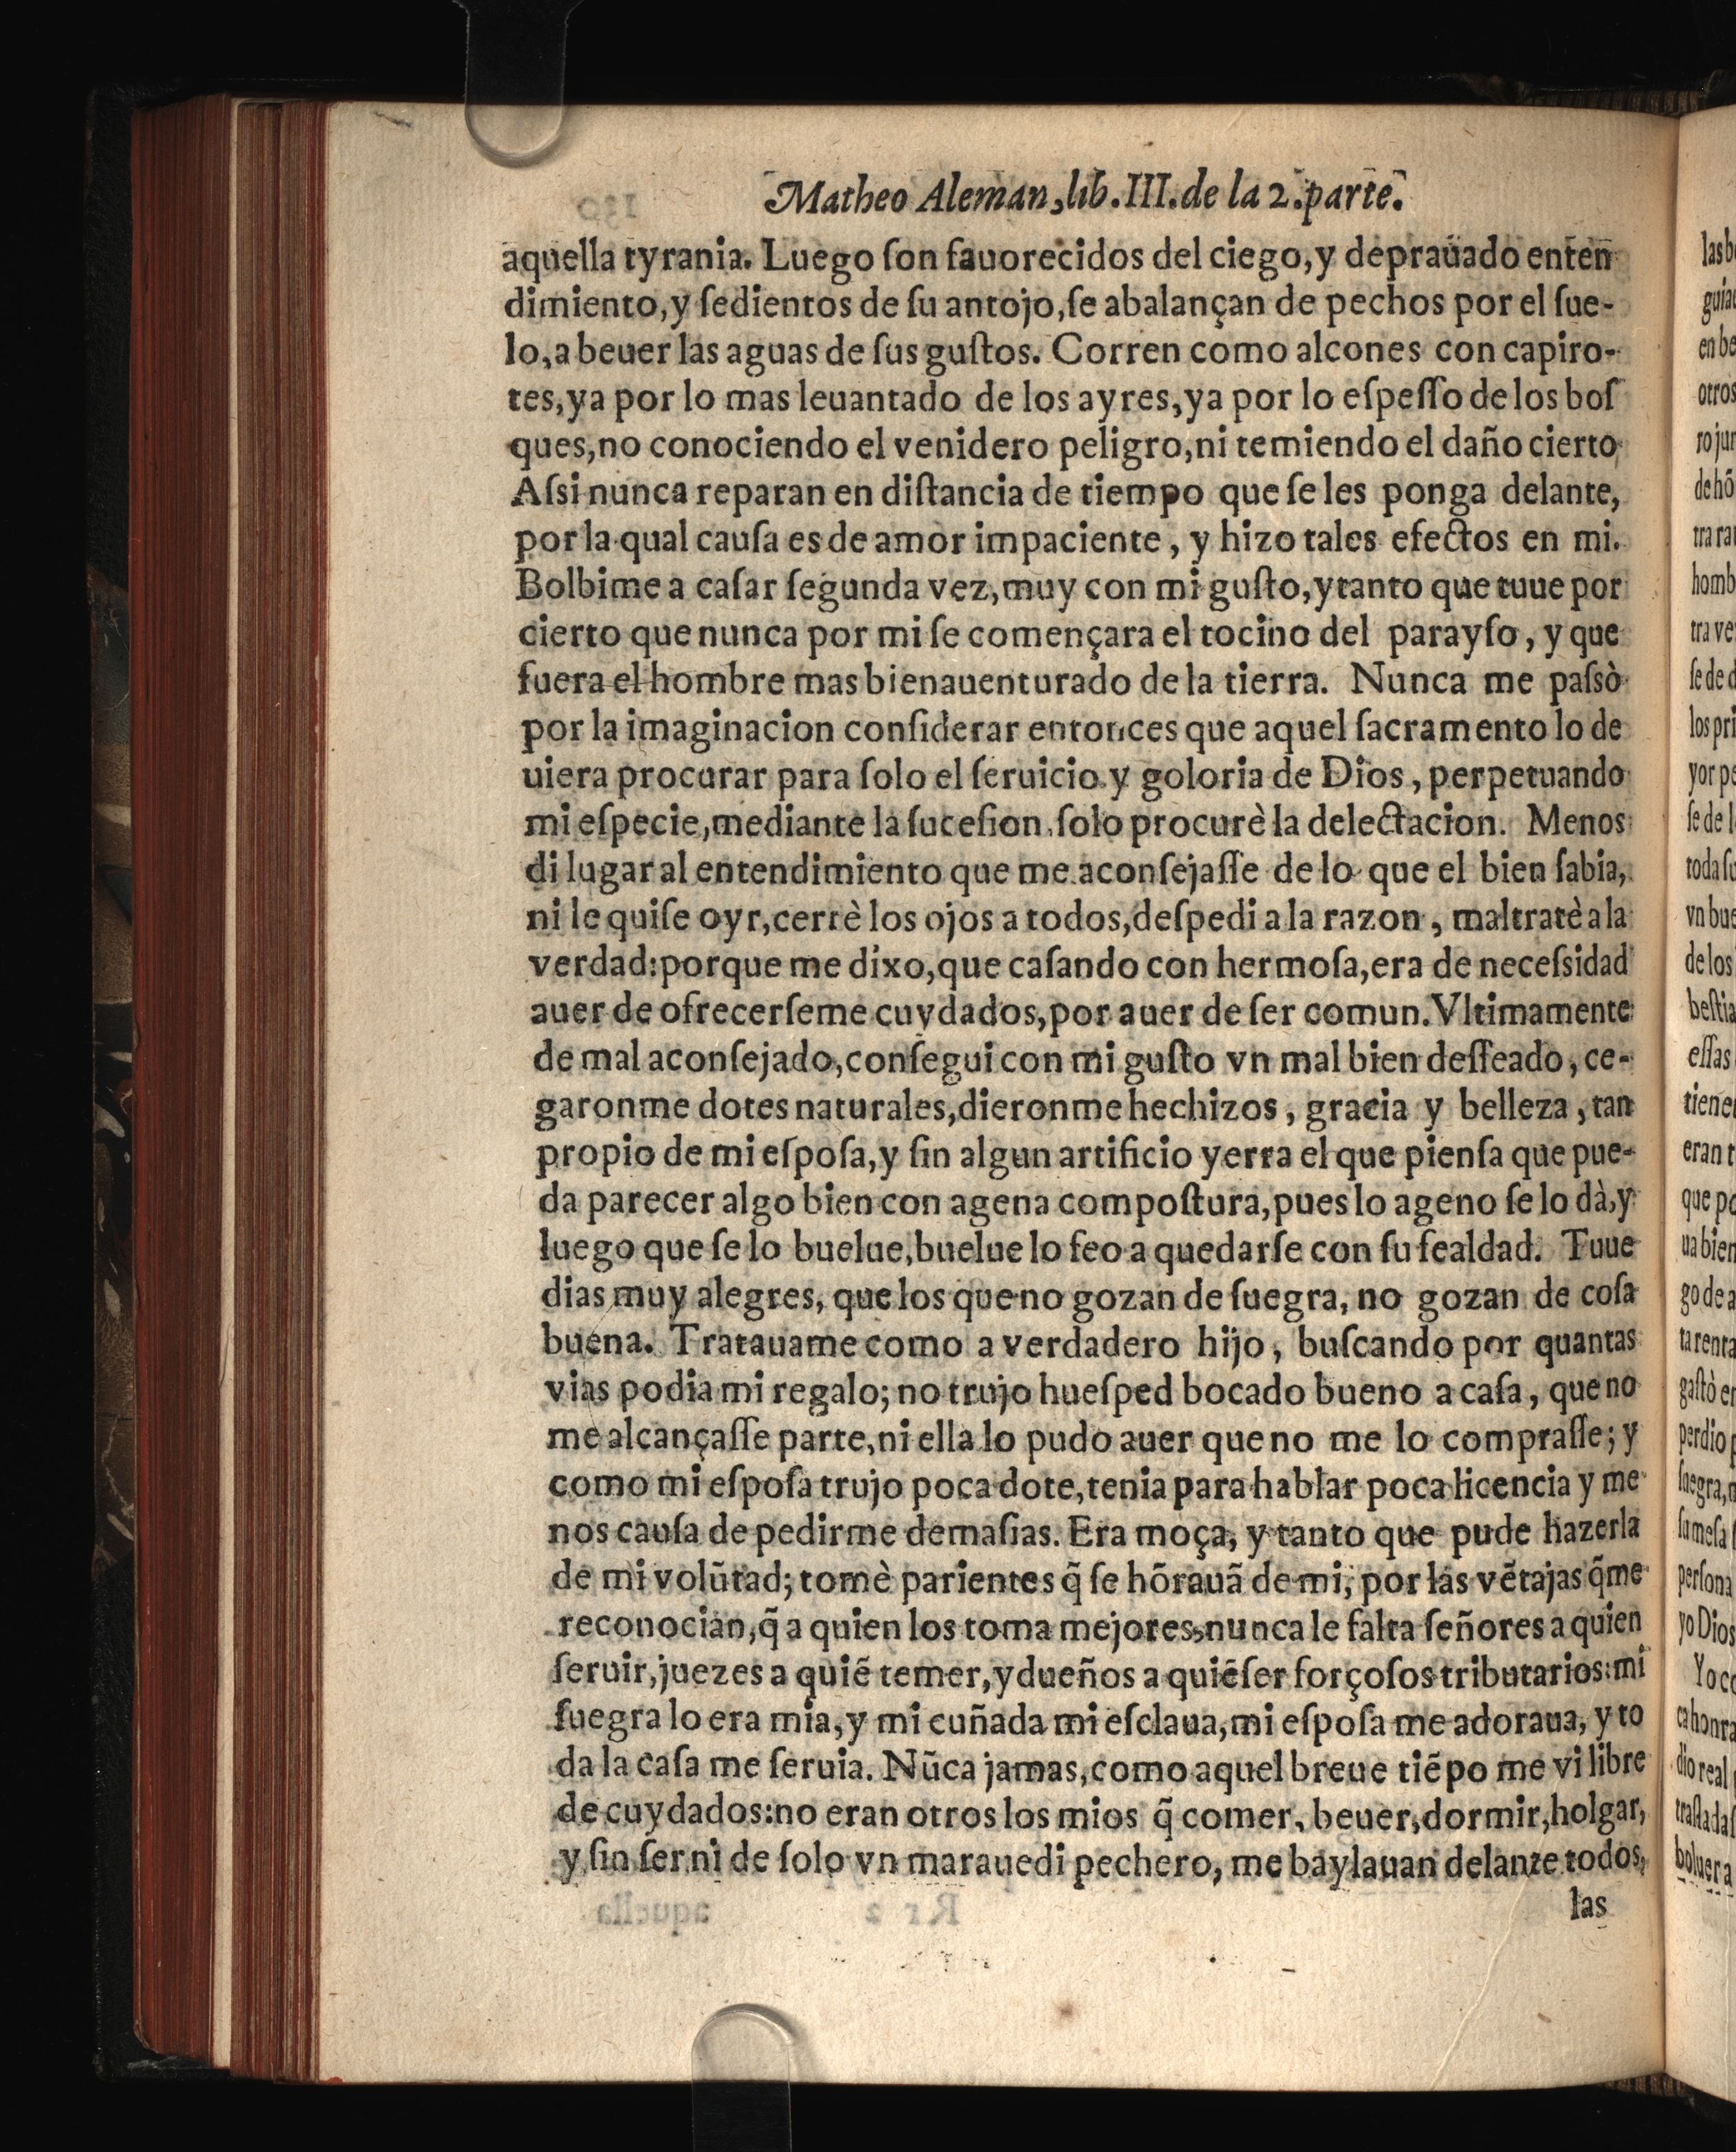 Matheo Aleman, lib. III. de la 2. parte.
aquella tyrania. Luego ſon fauorecidos del ciego, y deprauado enten
dimiento, y ſedientos de ſu antojo, ſe abalançan de pechos por el ſue-
lo, a beuer las aguas de ſus guſtos. Corren como alcones con capiro-
tes, ya por lo mas leuantado de los ayres, ya por lo eſpeſſo de los boſ
ques, no conociendo el venidero peligro, ni temiendo el daño cierto
Aſsi nunca reparan en diſtancia de tiempo que ſe les ponga delante,
por la qual cauſa es de amor impaciente, y hizo tales efectos en mi.
Bolbime a caſar ſegunda vez, muy con mi guſto, y tanto que tuue por
cierto que nunca por mi ſe començara el tocino del parayſo, y que
fuera el hombre mas bienauenturado de la tierra. Nunca me paſsò
por la imaginacion conſiderar entonces que aquel ſacramento lo de
uiera procurar para ſolo el ſeruicio y goloria de Dios, perpetuando
mi eſpecie, mediante la ſuceſion, ſolo procurè la delectacion. Menos
di lugar al entendimiento que me aconſejaſſe de lo que el bien ſabia,
ni le quiſe oyr, cerrè los ojos a todos, deſpedi a la razon, maltratè a la
verdad: porque me dixo, que caſando con hermoſa, era de neceſsidad
auer de ofrecerſeme cuydados, por auer de ſer comun. Vltimamente
de mal aconſejado, conſegui con mi guſto vn mal bien deſſeado, ce-
garonme dotes naturales, dieronme hechizos, gracia y belleza, tan
propio de mi eſpoſa, y ſin algun artificio yerra el que pienſa que pue-
da parecer algo bien con agena compoſtura, pues lo ageno ſe lo dà, y
luego que ſe lo buelue, buelue lo feo a quedarſe con ſu fealdad. Tuue
dias muy alegres, que los que no gozan de ſuegra, no gozan de coſa
buena. Tratauame como a verdadero hijo, buſcando por quantas
vias podia mi regalo; no trujo hueſped bocado bueno a caſa, que no
me alcançaſſe parte, ni ella lo pudo auer que no me lo compraſſe; y
como mi eſpoſa trujo poca dote, tenia para hablar poca licencia y me
nos cauſa de pedirme demaſias. Era moça, y tanto que pude hazerla
de mi volũtad; tomè parientes q̃ ſe hõrauã de mi, por las vẽtajas q̃ me
reconocian, q̃ a quien los toma mejores, nunca le falta ſeñores a quien
ſeruir, juezes a quiẽ temer, y dueños a quiẽ ſer forçoſos tributarios: mi
ſuegra lo era mia, y mi cuñada mi eſclaua, mi eſpoſa me adoraua, y to
da la caſa me ſeruia. Nũca jamas, como aquel breue tiẽpo me vi libre
de cuydados: no eran otros los mios q̃ comer, beuer, dormir, holgar,
y ſin ſer ni de ſolo vn marauedi pechero, me baylauan delante todos,
las